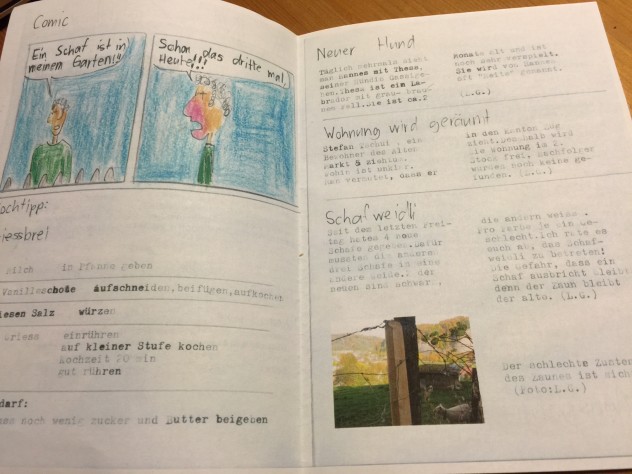 Comic
Ein Schaf ist in
meinem Garten!!
Schon das dritte mal,
Heute!!!
ochtipp:
riessbrei
milch in Pfanne geben
Vanilleschote aufschneiden,beifügen,aufkochen
iesen Salz würzen
Griess einrühren
auf kleiner Stufe kochen
Kochzeit 20 min
gut rühren
darf:
noch wenig zucker und Butter beigeben
Neuer Hund
Täglich mehrmals sieht
man Hannes mit Thess,
seiner Hündin
Thess ist ein La-
brador mit grau- brau-
nem Fell.Sie ist ca.2
Monate alt und ist
noch sehr verspielt.
Sie wird von Hannes
oft "Seite" genannt.
(L.G.)
Wohnung wird geräumt
Stefan Tschui , ein
Bewohner des Alten
Markt 5 ziehtus.
wohin ist unklar.
Man vermutet, dass er
in den Kanton Zug
zieht.Deshalb wird
die Wohnung im 2.
Stock frei. Nachfolger
wurden noch keine ge-
funden. (L.G.)
Schafweidli
Seit dem letzten Frei-
tag hates 4 neue
Schafe gegeben.Dafür
mussten die anderen
drei Schafe in eine
andere Weide. der
neuen sind schwarz,
die andern weiss .
Pro Farbe je ein Ge-
schlecht.Ich rate es
euch ab, das Schaf-
weidli zu betreten!
Die Gefahr, dass ein
Schaf ausbricht bleibt
denn der Zaun bleibt
der alte. (L.G.)
Der schlechte Zusten
des Zaunes ist sich
(Foto:L.G.)